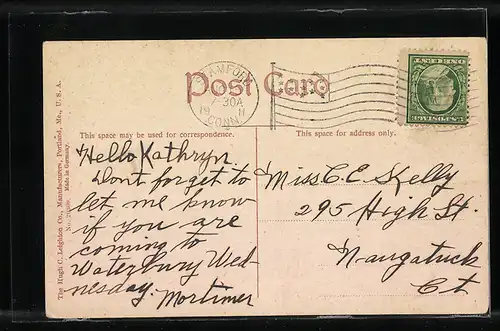 Post Card
STAMFORD
7-30A
19 11
CONN.
ONE CENT
U.S. POSTAGE
This space may be used for correspondence.
This space for address only.
Hello Kathryn
Dont forget to
let me know
if you are
coming to
Waterbury Wed-
nesday.
Mortimer
Miss C. C. Skelly
295 High St.
Naugatuck
Ct
The Hugh C. Leighton Co., Manufacturers, Portland, Me., U. S. A.
Made in Germany.